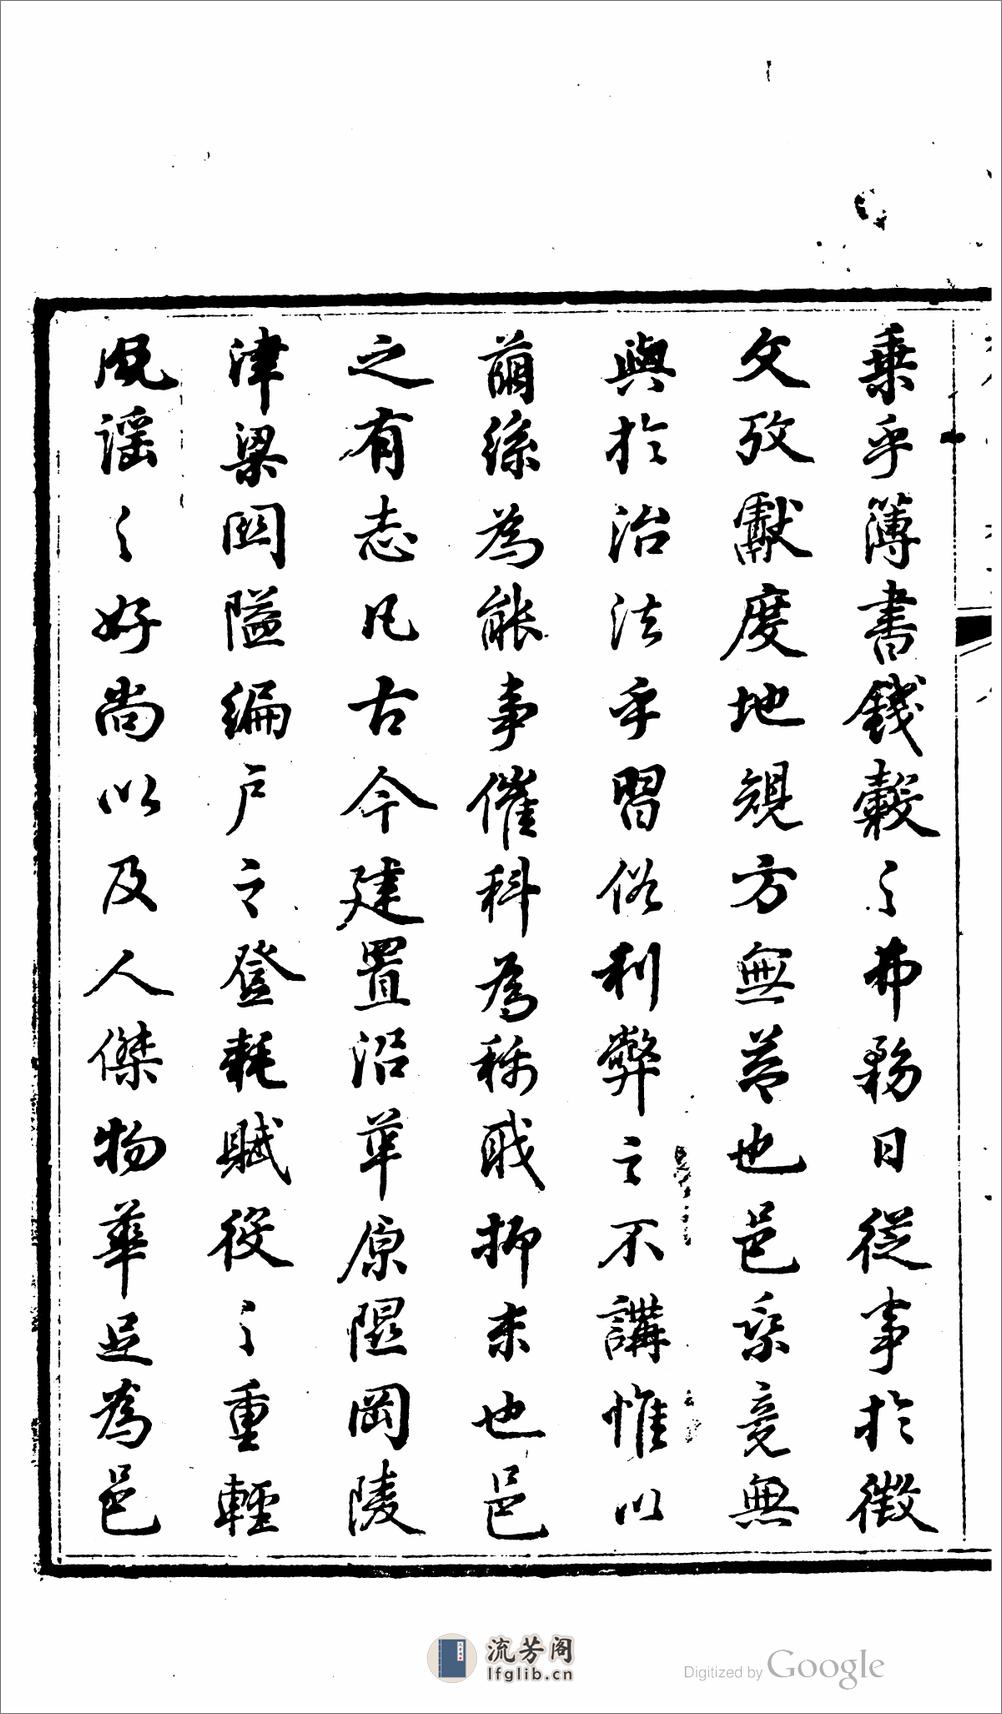 乗乎簿書錢穀之弗務日從事於徵
文攷獻度地規方無益也邑乘竟無
與於治法乎習俗利弊之不講惟以
繭絲為能事催科為稱職抑末也邑
之有志凡古今建置沿革原隰岡陵
津梁関隘編户之登耗賦役之重輕
風謡之好尚以及人傑物華足為邑
流芳阁
lfglib.cn
Digitized by Google